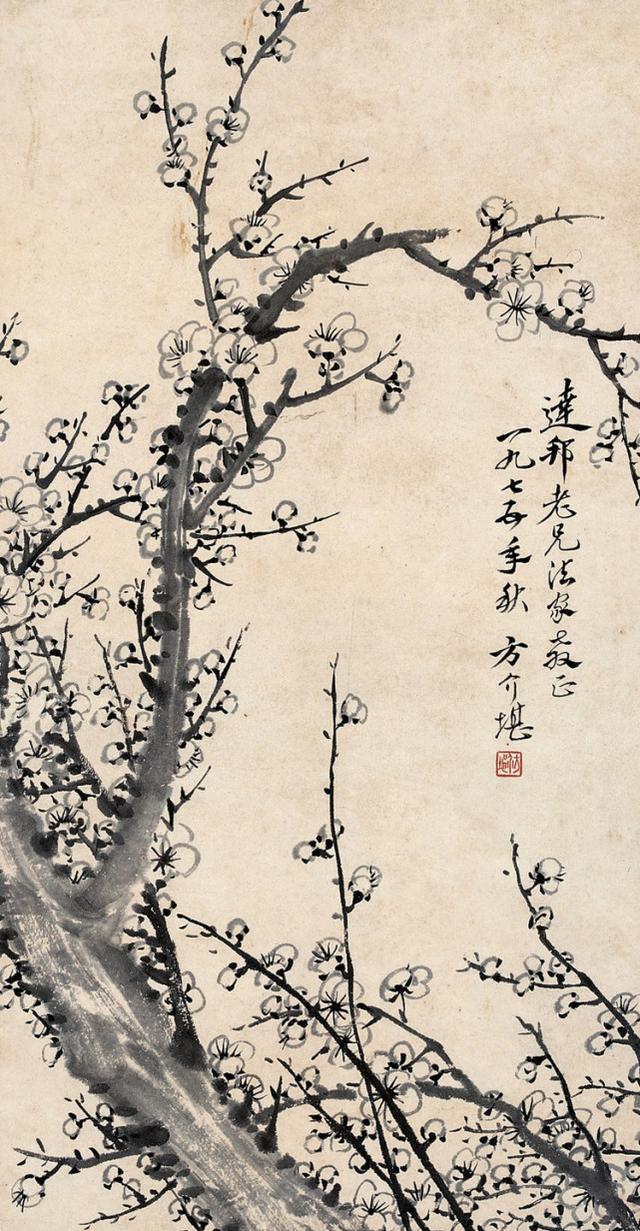 達邦老兄法家教正
一九七五年秋 方介堪